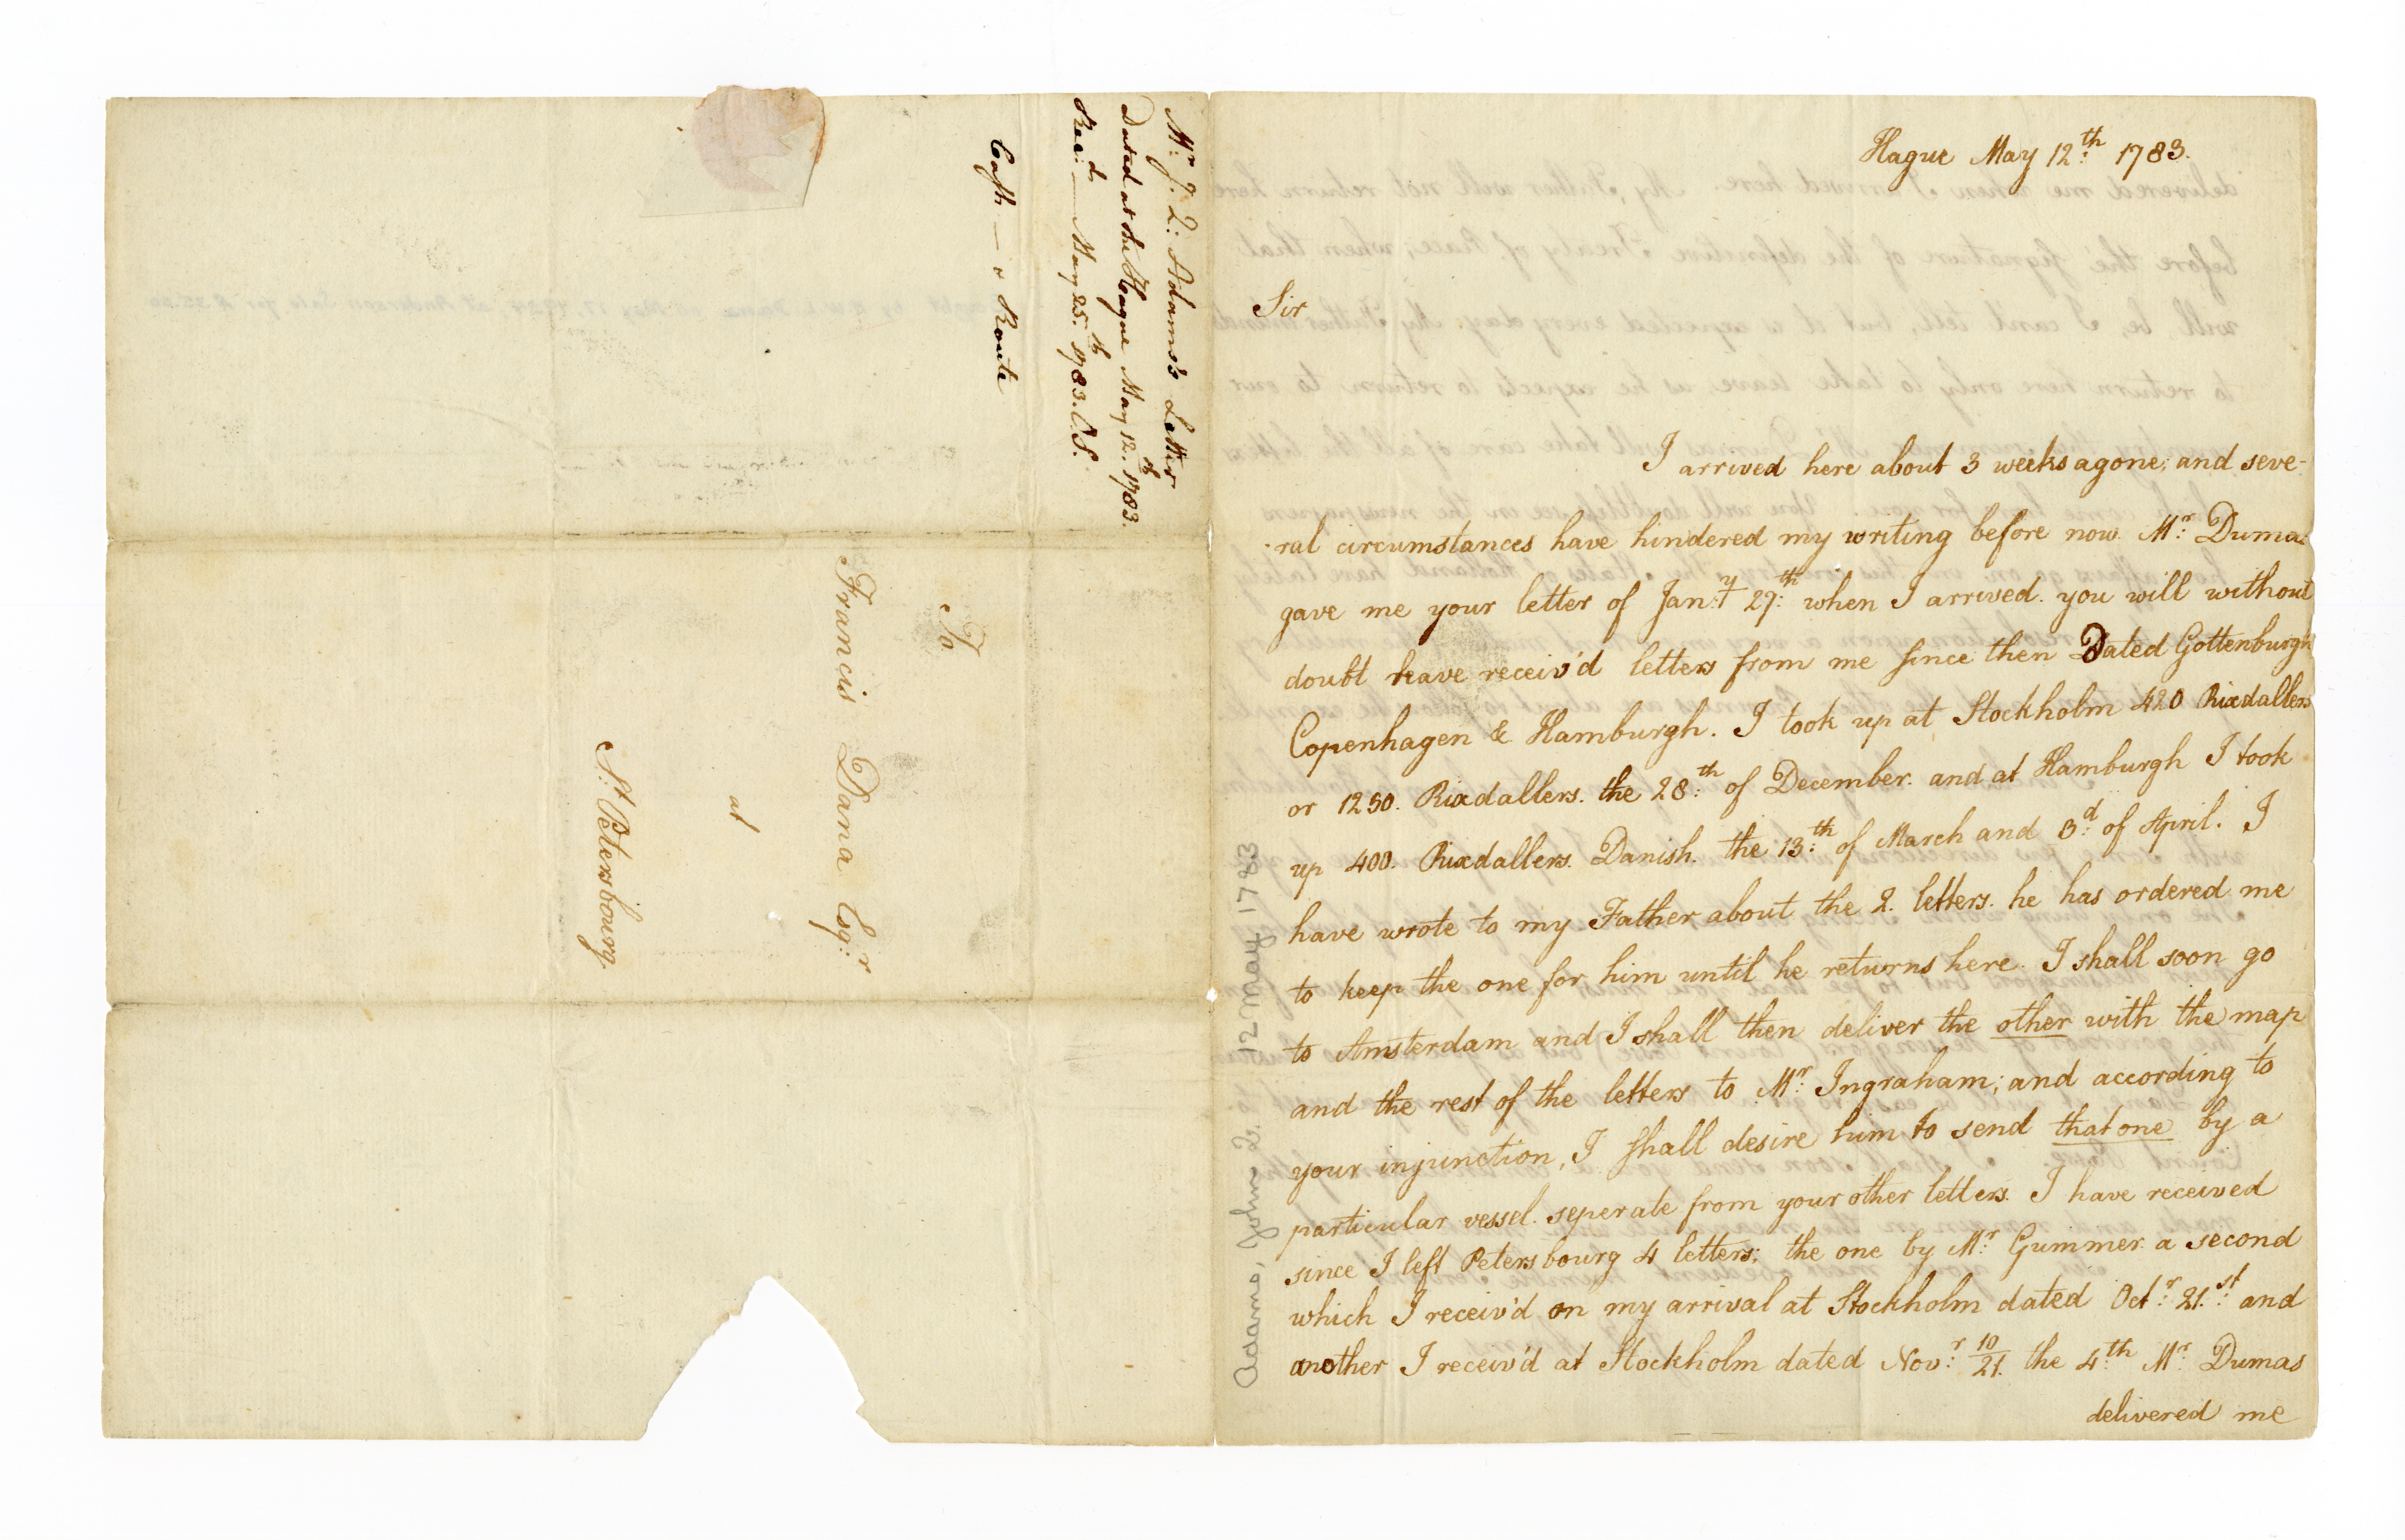 Mr: J. Q: Adams's Letter
Dated at the Hague May 12.th 1783.
Recd: — May 25.th 1783. O.S.
Cash — & Route
To
Francis Dana Esqr:
at
St: Petersbourg.
Hague May 12th: 1783.
Sir
I arrived here about 3 weeks agone; and seve-
ral circumstances have hindered my writing before now. Mr: Dumas
gave me your letter of Jany: 27th: when I arrived. you will without
doubt have receiv'd letters from me since then Dated Gottenburgh
Copenhagen & Hamburgh. I took up at Stockholm 420 Rixdallers
or 1250. Rixdallers. the 28th: of December. and at Hamburgh I took
up 400. Rixdallers. Danish. the 13th: of March and 3d: of April. I
have wrote to my Father about the 2. letters. he has ordered me
to keep the one for him until he returns here. I shall soon go
to Amsterdam and I shall then deliver the other with the map
and the rest of the letters to Mr: Ingraham; and according to
your injunction, I shall desire him to send that one by a
particular vessel. seperate from your other letters. I have received
since I left Petersbourg 4 letters; the one by Mr: Gummer. a second
which I receiv'd on my arrival at Stockholm dated Octr: 21.st: and
another I receiv'd at Stockholm dated Novr: 10/21. the 4th: Mr: Dumas
delivered me
Adams, John Q. 12 May 1783